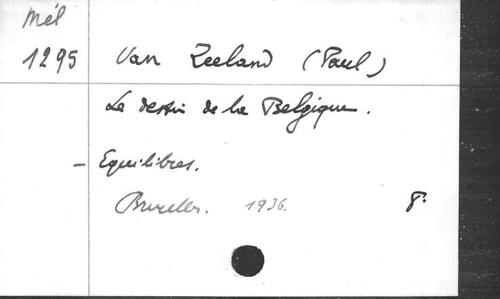 Mél
1295 Van Zeeland (Paul)
Le destin de la Belgique.
- Equilibres.
Bruxelles. 1936. 8°